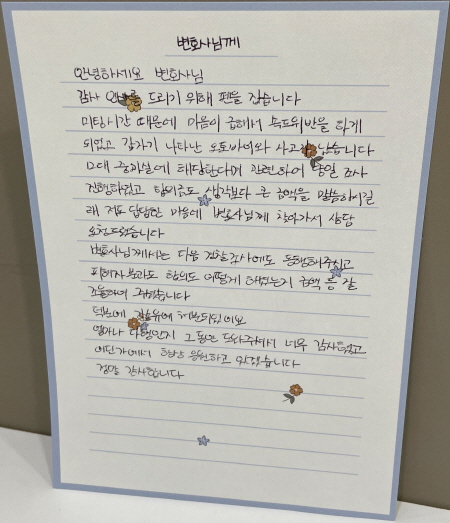 변호사님께
안녕하세요 변호사님
감사 드리기 위해 펜을 잡습니다
미팅시간 때문에 마음이 급해서 속도위반을 하게
되었고 갑자기 나타난 오토바이와 사고가 났습니다
12대 중과실에 해당한다며 관련하여 당일 조사
진행하였고 합의금도 생각보다 큰 금액을 말씀하시길
래 저도 답답한 마음에 변호사님께 찾아가서 상담
요청드렸습니다
변호사님께서는 다음 경찰조사에도 동행해주시고
피해자분과도 합의도 어떻게 해야하는지 금액 등 잘
조율하여 주셨습니다
덕분에 기소유예 처분되었어요
얼마나 다행인지 그동안 도와주셔서 너무 감사드리고
어딘가에서 항상 응원하고 있겠습니다
정말 감사합니다